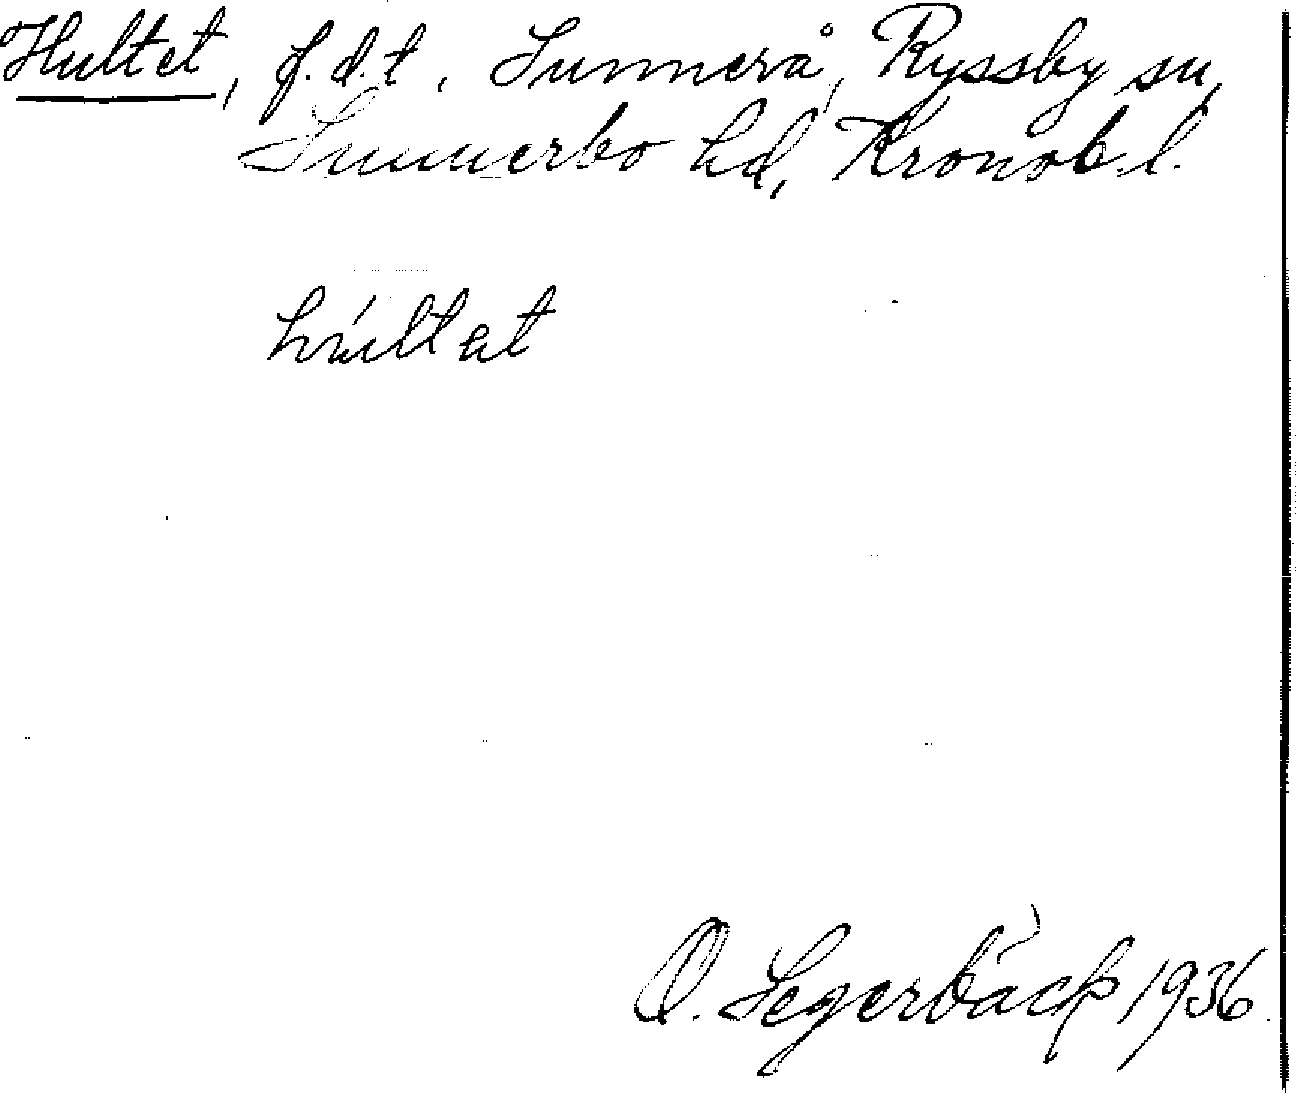 Hultet, f.d.t. Sunnerå, Ryssby sn,
Sunnerbo hd, Kronob. l.
húltet
O. Segerbäck 1936.